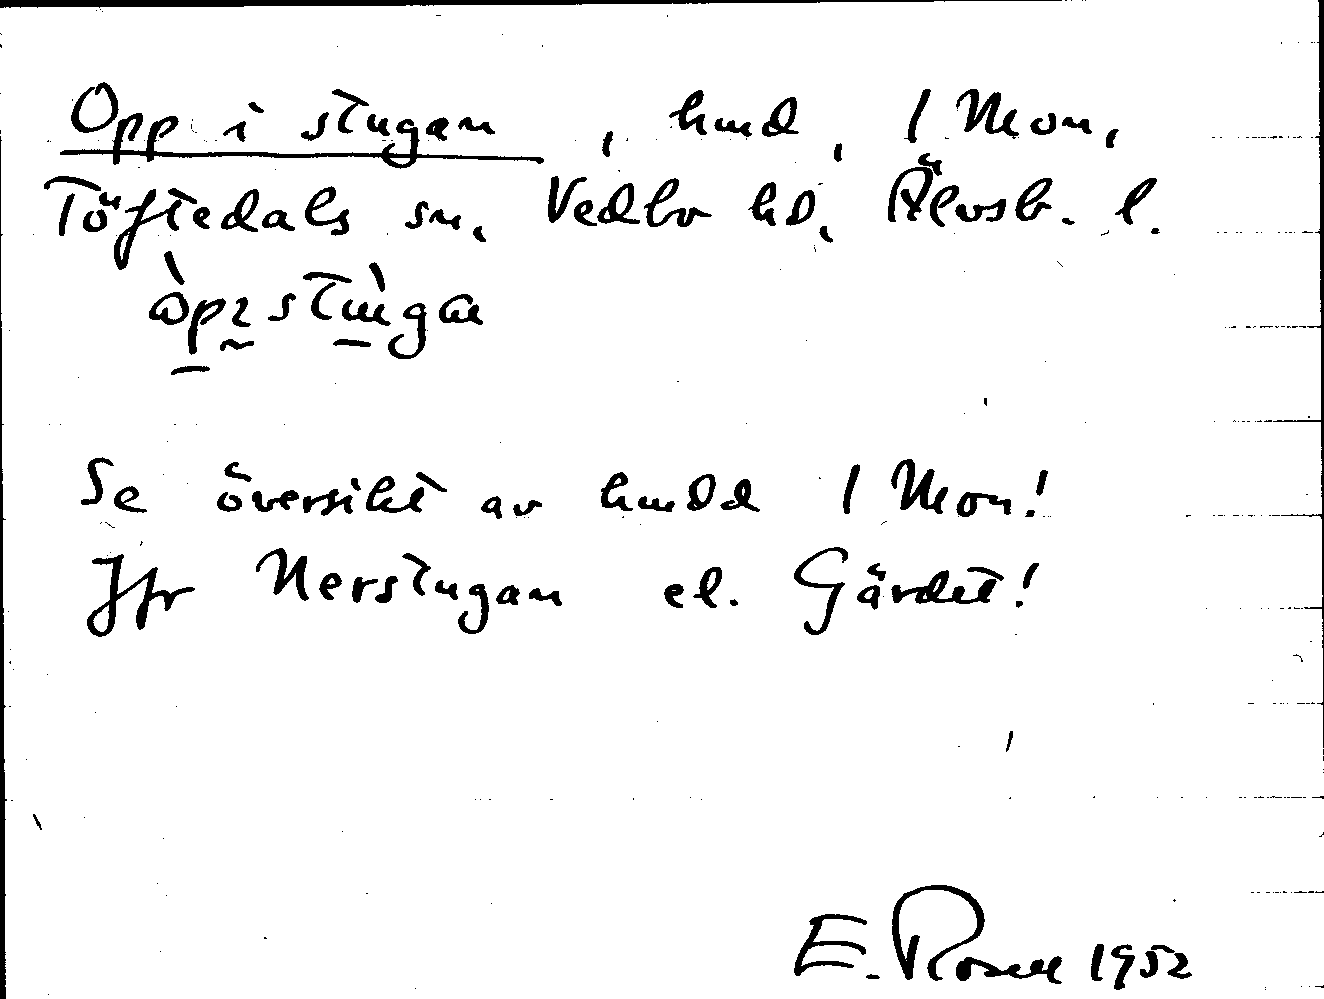 Opp i stugan, hmd, 1 Mon,
Töftedals sn, Vedbo hd, Älvsb. l.
Se översikt av hmdd 1 Mon!
Jfr Nerstugan el. Gärdet!
E. Rosell 1952